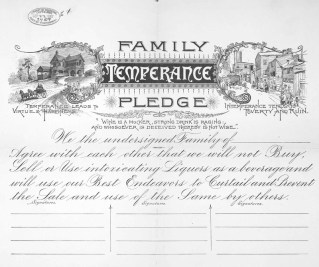 FAMILY
TEMPERANCE
PLEDGE
TEMPERANCE LEADS TO
VIRTUE & HAPPINESS.
INTEMPERANCE TENDS TO
POVERTY AND RUIN.
"WINE IS A MOCKER, STRONG DRINK IS RAGING
AND WHOSOEVER IS DECEIVED THEREBY IS NOT WISE."
We the undersigned Family of
Agree with each other that we will not Buy,
Sell or Use intoxicating Liquors as a beverage and
will use our Best Endeavors to Curtail and Prevent
the Sale and use of the Same by others.
Signatures Signatures Signatures